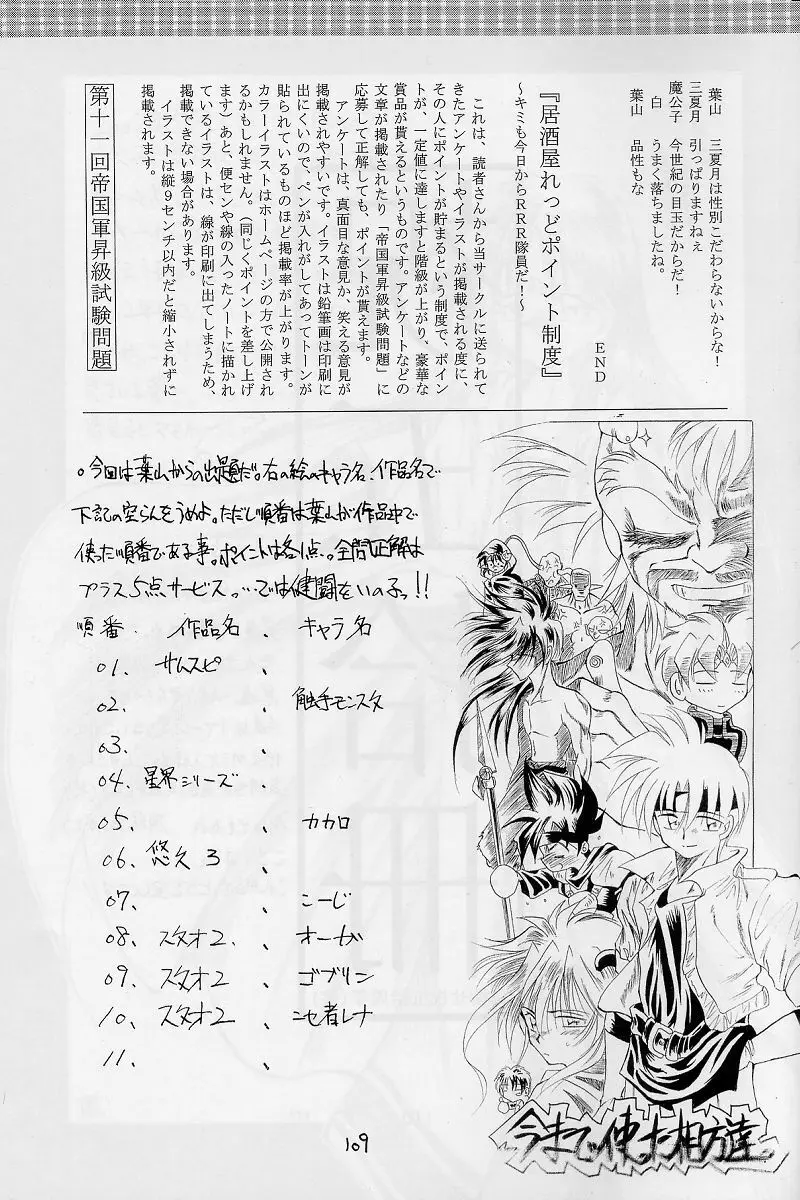 葉山　三夏月は性別こだわらないからな！
三夏月　引っぱりますねぇ
魔公子　今世紀の目玉だからだ！
白　うまく落ちましたね。
葉山　品性もな
END
『居酒屋れっどポイント制度』
～キミも今日からＲＲＲ隊員だ！～
これは、読者さんから当サークルに送られて
きたアンケートやイラストが掲載される度に、
その人にポイントが貯まるという制度で、ポイン
トが、一定値に達しますと階級が上がり、豪華な
賞品が貰えるというものです。アンケートなどの
文章が掲載されたり「帝国軍昇級試験問題」に
応募して正解しても、ポイントが貰えます。
アンケートは、真面目な意見か、笑える意見が
掲載されやすいです。イラストは鉛筆画は印刷に
出にくいので、ペンが入れがしてあってトーンが
貼られているものほど掲載率が上がります。
カラーイラストはホームページの方で公開され
るかもしれません。（同じくポイントを差し上げ
ます）あと、便センや線の入ったノートに描かれ
ているイラストは、線が印刷に出てしまうため、
掲載できない場合があります。
イラストは縦９センチ以内だと縮小されずに
掲載されます。
第十一回帝国軍昇級試験問題
。今回は葉山からの出題だ。右の絵のキャラ名、作品名で
下記の空らんをうめよ。ただし順番は葉山が作品中で
使った順番である事。ポイントは各1点。全問正解は
プラス5点サービス。…では健闘をいのるっ!!
順番.　作品名　、　キャラ名
01.　サムスピ　、
02.　、　触手モンスタ
03.　、
04.　星界シリーズ　.
05.　、　カカロ
06.　悠久3　、
07.　、　こーじ
08.　スタオ2.　、　オーガ
09.　スタオ2　、　ゴブリン
10.　スタオ2　、　ニセ者レナ
11.　、
今まで使った相方達
109